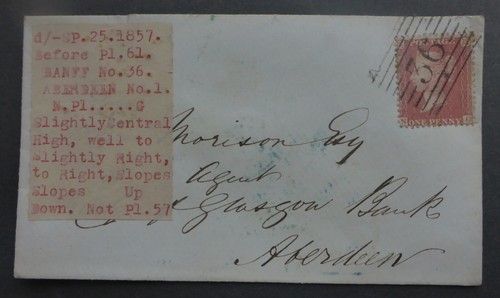 d/-SP.25.1857.
Before Pl.61.
BANFF No.36.
ABERDEEN No.1.
N.Pl.....G
Slightly Central
High, well to
slightly Right,
to Right, Slopes
Slopes Up
Down. Not Pl.57
36
ONE PENNY
Morison Esq
Agent
Glasgow Bank
Aberdeen